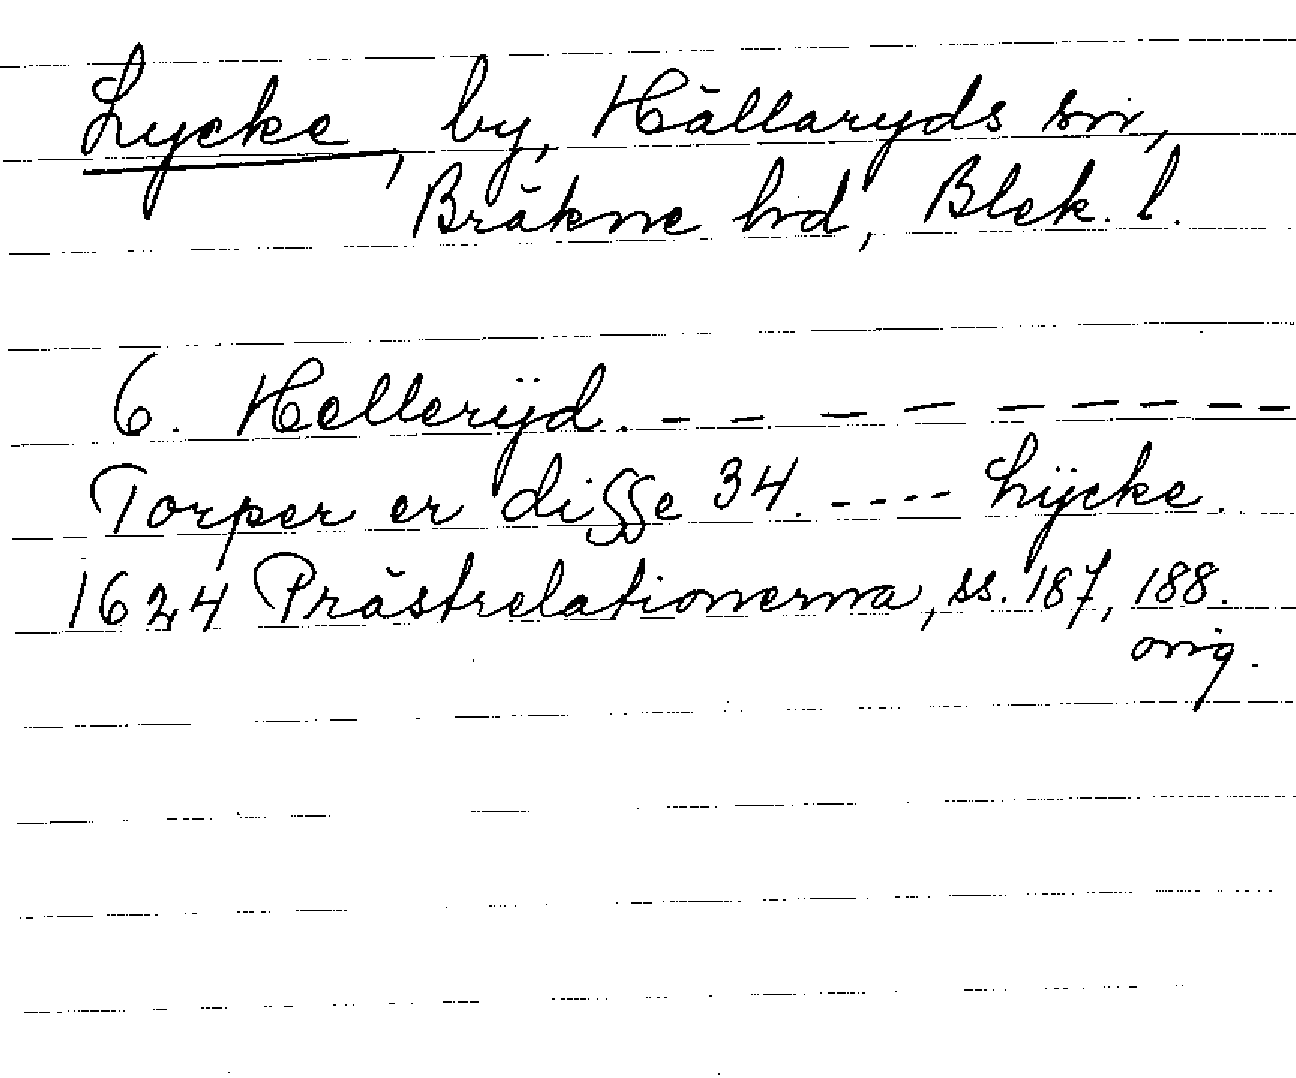 Lycke, by, Hällaryds sn,
Bräkne hd, Blek. l.
6. Hellerÿd. - - - - - - - - -
Torper er disse 34. ---- Lÿcke.
1624 Prästrelationerna, ss. 187, 188.
orig.